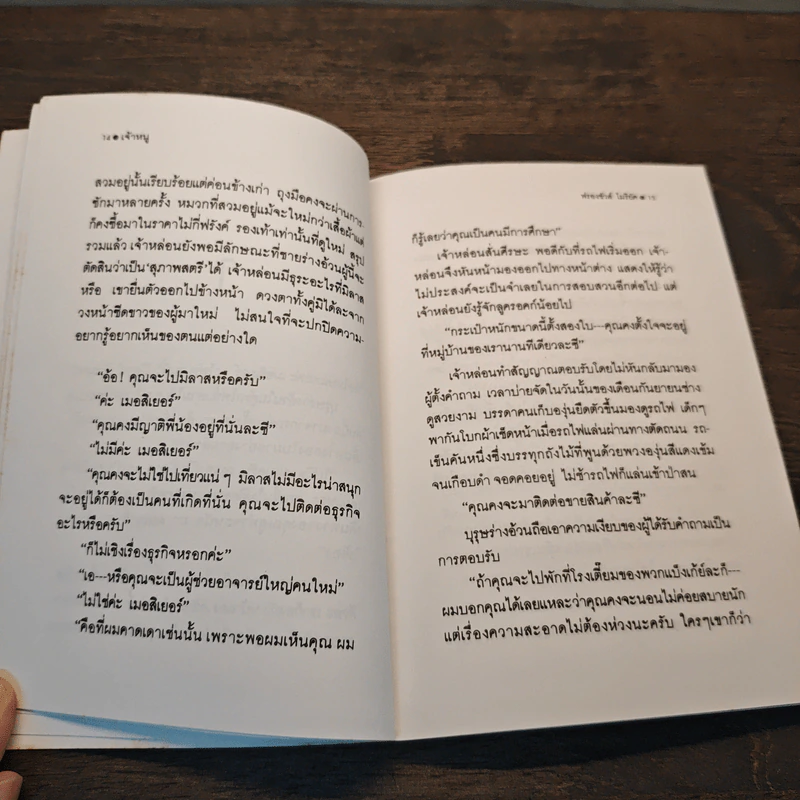 ๖๘ ● เจ้าหนู
สวมอยู่นั้นเรียบร้อยแต่ค่อนข้างเก่า ถุงมือคงจะผ่านการ-
ซักมาหลายครั้ง หมวกที่สวมอยู่แม้จะใหม่กว่าเสื้อผ้าแต่
ก็คงซื้อมาในราคาไม่กี่ฟรังค์ รองเท้าเท่านั้นที่ดูใหม่ สรุป
รวมแล้ว เจ้าหล่อนยังพอมีลักษณะที่ชายร่างอ้วนผู้นี้จะ
ตัดสินว่าเป็น‘สุภาพสตรี’ได้ เจ้าหล่อนมีธุระอะไรที่มิลาส
หรือ เขายื่นตัวออกไปข้างหน้า ดวงตาทั้งคู่มิได้ละจาก
วงหน้าซีดขาวของผู้มาใหม่ ไม่สนใจที่จะปกปิดความ-
อยากรู้อยากเห็นของตนแต่อย่างใด
“อ้อ! คุณจะไปมิลาสหรือครับ”
“ค่ะ เมอสิเยอร์”
“คุณคงมีญาติพี่น้องอยู่ที่นั่นละซี”
“ไม่มีค่ะ เมอสิเยอร์”
“คุณคงจะไม่ใช่ไปเที่ยวแน่ ๆ มิลาสไม่มีอะไรน่าสนุก
จะอยู่ได้ก็ต้องเป็นคนที่เกิดที่นั่น คุณจะไปติดต่อธุรกิจ
อะไรหรือครับ”
“ก็ไม่เชิงเรื่องธุรกิจหรอกค่ะ”
“เอ---หรือคุณจะเป็นผู้ช่วยอาจารย์ใหญ่คนใหม่”
“ไม่ใช่ค่ะ เมอสิเยอร์”
“คือที่ผมคาดเดาเช่นนั้น เพราะพอผมเห็นคุณ ผม
ก็รู้เลยว่าคุณเป็นคนมีการศึกษา”
เจ้าหล่อนสั่นศีรษะ พอดีกับที่รถไฟเริ่มออก เจ้า-
หล่อนจึงหันหน้ามองออกไปทางหน้าต่าง แสดงให้รู้ว่า
ไม่ประสงค์จะเป็นจำเลยในการสอบสวนอีกต่อไป แต่
เจ้าหล่อนยังรู้จักลูครอคก์น้อยไป
“กระเป๋าหนักขนาดนี้ตั้งสองใบ---คุณคงตั้งใจจะอยู่
ที่หมู่บ้านของเรานานทีเดียวละซี”
เจ้าหล่อนทำสัญญาณตอบรับโดยไม่หันกลับมามอง
ผู้ตั้งคำถาม เวลาบ่ายจัดในวันนั้นของเดือนกันยายนช่าง
ดูสวยงาม บรรดาคนเก็บองุ่นยืดตัวขึ้นมองดูรถไฟ เด็กๆ
พากันโบกผ้าเช็ดหน้าเมื่อรถไฟแล่นผ่านทางตัดถนน รถ-
เข็นคันหนึ่งซึ่งบรรทุกถังไม้ที่พูนด้วยพวงองุ่นสีแดงเข้ม
จนเกือบดำ จอดคอยอยู่ ไม่ช้ารถไฟก็แล่นเข้าป่าสน
“คุณคงจะมาติดต่อขายสินค้าละซี”
บุรุษร่างอ้วนถือเอาความเงียบของผู้ได้รับคำถามเป็น
การตอบรับ
“ถ้าคุณจะไปพักที่โรงเตี๊ยมของพวกแบ็งเก้ย์ละก็---
ผมบอกคุณได้เลยแหละว่าคุณคงจะนอนไม่ค่อยสบายนัก
แต่เรื่องความสะอาดไม่ต้องห่วงนะครับ ใครๆเขาก็ว่า